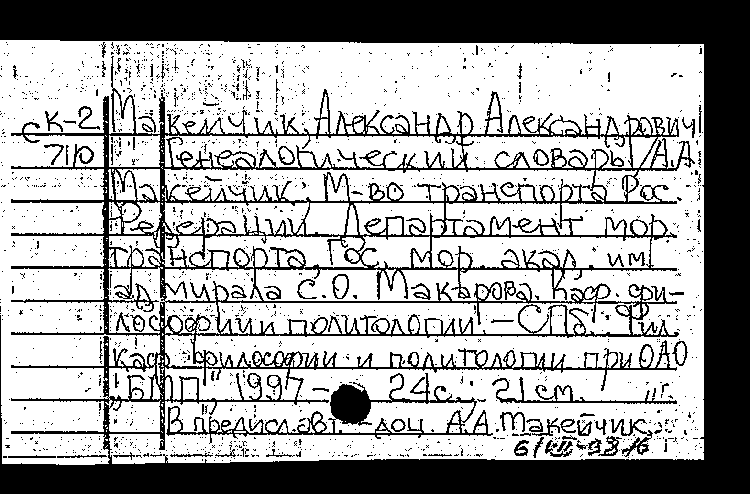 С К-2 Макейчик, Александр Александрович
7110 Генеалогический словарь / А.А.
Макейчик; М-во транспорта Рос.
Федерации. Департамент мор.
транспорта, Гос. мор. акад. им.
адмирала С.О. Макарова. Каф. фи-
лософии и политологии. – СПб.: Фил.
каф. философии и политологии при ОАО
„БМП“, 1997 – 24с.; 21 см.
В предисл. авт. – доц. А.А. Макейчик.